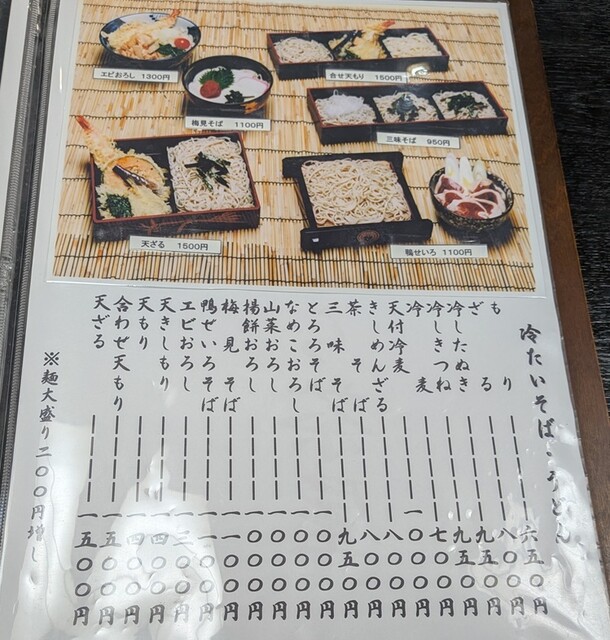 エビおろし 1300円
合せ天もり 1500円
梅見そば 1100円
三味そば 950円
天ざる 1500円
鴨せいろ 1100円
冷たいそば・うどん
もり 六五〇円
ざる 八〇〇円
冷したぬき 九五〇円
冷しきつね 九五〇円
冷麦 七〇〇円
天付冷麦 一〇〇〇円
きしめんざる 八〇〇円
茶そば 八〇〇円
三味そば 九五〇円
とろろそば 一〇〇〇円
なめこおろし 一〇〇〇円
山菜おろし 一〇〇〇円
揚餅おろし 一〇〇〇円
梅見そば 一一〇〇円
鴨ぜいろそば 一一〇〇円
エビおろし 一三〇〇円
天きしもり 一四〇〇円
天もり 一四〇〇円
合わせ天もり 一五〇〇円
天ざる 一五〇〇円
※麺大盛り二〇〇円増し